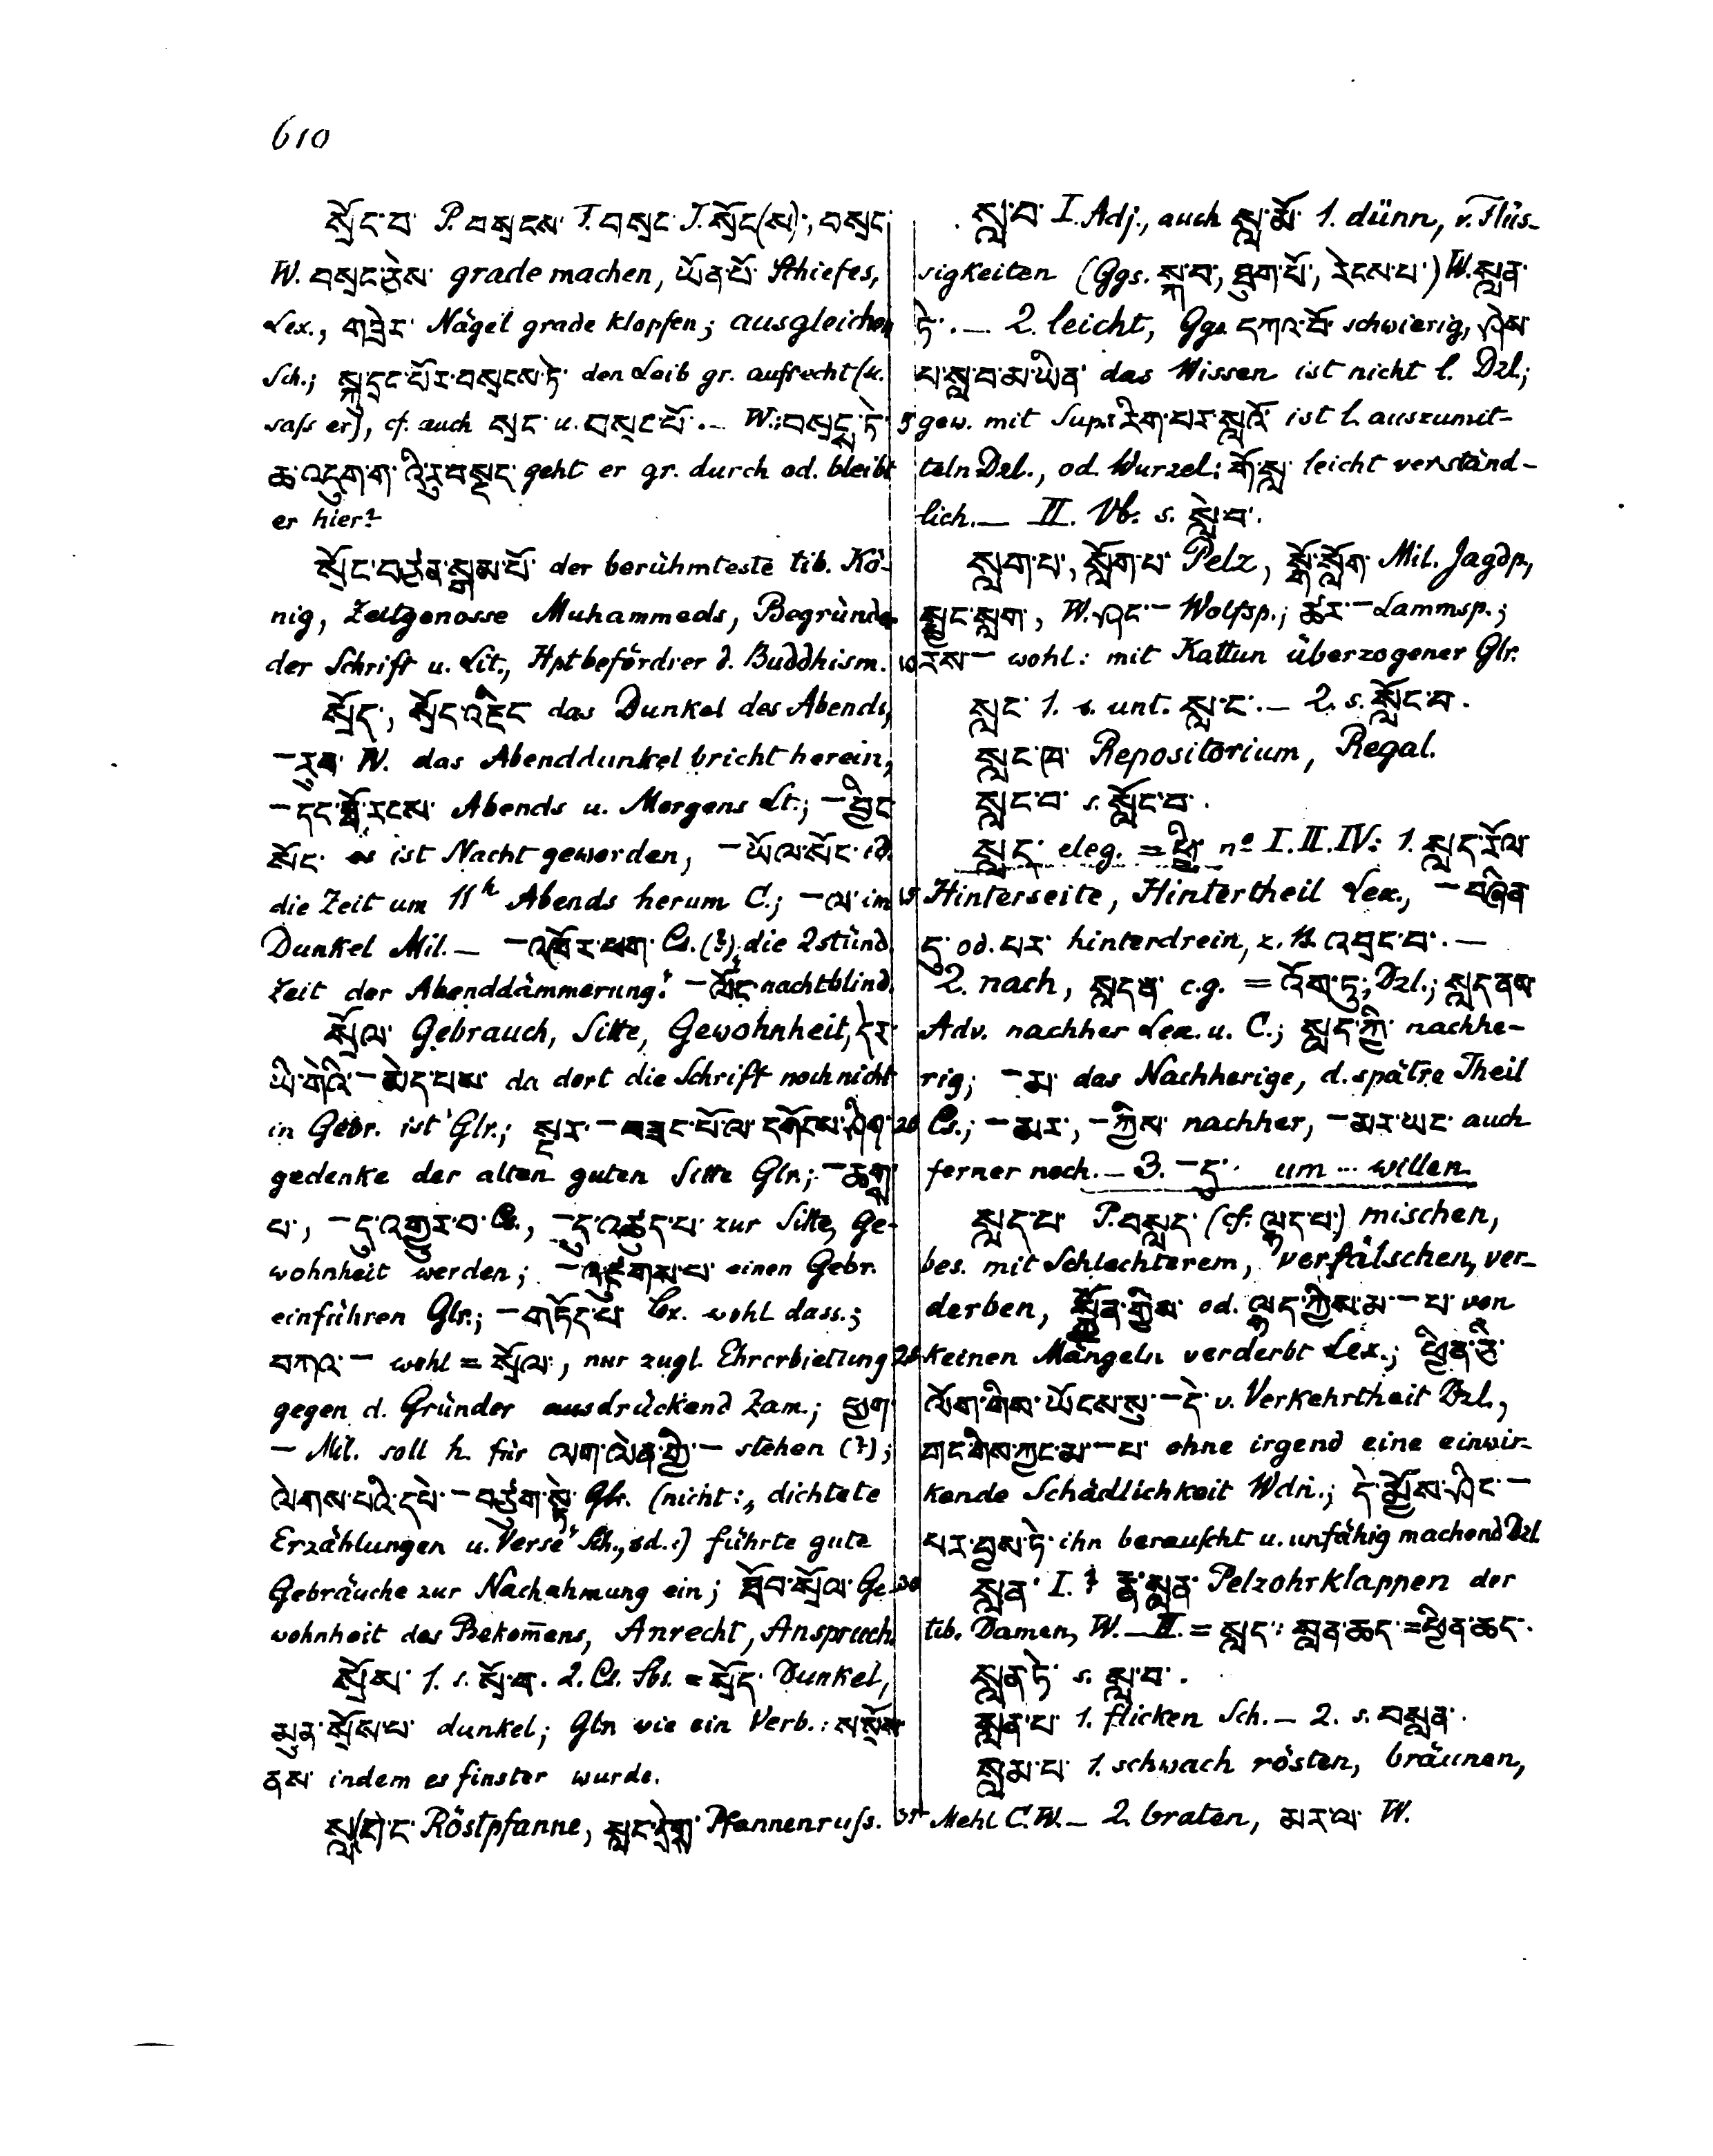 610
སྲོང་བ་ P. བསྲངས་ F. བསྲང་ J. སྲོང(ས)་, བསྲང་
W. བསྲང་ཅེས་ grade machen, ཡོན་པོ་ Schiefes,
Lex., གཟེར་ Nägel grade klopfen; ausgleichen
Sch.; སྐུ་དྲང་པོར་བསྲངས་ཏེ་ den Leib gr. aufrecht (u.
saſs er), cf. auch སྲང་ u. བསྲང་པོ་. — W.: བསྲང་སྟེ་
ཆ་འདུག་ག་འི་རུ་བསྡད་ geht er gr. durch od. bleibt
er hier?
སྲོང་བཙན་སྒམ་པོ་ der berühmteste tib. Kö-
nig, Zeitgenosse Muhammeds, Begründer
der Schrift u. Lit., Hptbefördrer d. Buddhism.
སྲོད་, སྲོད་འཇིང das Dunkel des Abends,
— W. das Abenddunkel bricht herein,
—དང་ཐོ་རངས་ Abends u. Morgens Lt.; —བྱིང
སོང་ es ist Nacht geworden, —ཡོལ་སོང་ id.
die Zeit um 11h Abends herum C.; —ལ་ im
Dunkel Mil. — —འཁོར་ཕག་ Cs. (?) „die 2stünd.
Zeit der Abenddämmerung." —ལོང་ nachtblind.
སྲོལ་ Gebrauch, Sitte, Gewohnheit, དེར་
ཡི་གེའི་—མེད་པས་ da dort die Schrift noch nicht
in Gebr. ist Glr.; སྔར་—བཟང་པོ་ལ་དགོངས་ཤིག་
gedenke der alten guten Sitte Glr.; —ཆགས་
པ་, —དུ་འགྱུར་བ་ Cs., —དུ་འཛུད་པ་ zur Sitte, Ge-
wohnheit werden; —འཛུགས་པ་ einen Gebr.
einführen Glr.; —གཏོད་པ་ Lx. wohl dass.;
བཀའ་— wohl = སྲོལ་, nur zugl. Ehrerbietung
gegen d. Gründer ausdrückend Zam.; ཕྱག་
— Mil. soll h. für ལག་ལེན་གྱི་— stehen (?);
ལེགས་པའི་དཔེ་—བཙུག་སྟེ་ Glr. (nicht: „dichtete
Erzählungen u. Verse" Sch., sd.:) führte gute
Gebräuche zur Nachahmung ein; ཐོབ་སྲོལ་ Ge-
wohnheit des Bekom̄ens, Anrecht, Anspruch.
སྲོས་ 1. s. སྲོ་བ་. 2. Cs. Sbs. = སྲོད་ Dunkel,
མུན་སྲོས་པ་ dunkel; Glr. wie ein Verb.: ས་སྲོས་
ནས་ indem es finster wurde.
སླ(འ)་ང་ Röstpfanne, སླང་དྲེག་ Pfannenruſs.
སླ་བ་ I. Adj., auch སླ་མོ་ 1. dünn, v. Flüs-
sigkeiten (Ggs. སྐ་བ་, ཐུག་པོ་, རེངས་པ་) W. སླན་
ཏེ་. — 2. leicht, Ggs. དཀའ་བོ་ schwierig, ཤེས་
པ་སླ་བ་མ་ཡིན་ das Wissen ist nicht l. Dzl.;
5 gew. mit Sup.: རིག་པར་སླའོ་ ist l. auszumit-
teln Dzl., od. Wurzel: གོ་སླ་ leicht verständ-
lich. — II. Vb. s. སླེ་བ་.
སླག་པ་, སློག་པ་ Pelz, སྒོ་སློག་ Mil. Jagdp.,
སྤྱང་སླག་, W. ཤང་— Wolfsp.; ཚར་— Lammsp.;
10 རས་— wohl: mit Kattun überzogener Glr.
སླང་ 1. s. unt. སླ་ང་. — 2. s. སློང་བ་.
སླང་ཁ་ Repositorium, Regal.
སླང་བ་ s. སློང་བ་.
སླད་ eleg. = ཕྱི་ no I. II. IV: 1. སླད་རོལ་
15 Hinterseite, Hintertheil Lex., —བཞིན་
དུ་ od. པར་ hinterdrein, z.B. འབྲང་བ་. —
2. nach, སླད་ན་ c.g. = འོག་ཏུ་, Dzl.; སླད་ནས་
Adv. nachher Lex. u. C.; སླད་ཀྱི་ nachhe-
rig; —མ་ das Nachherige, d. spätre Theil
20 Cs.; —མར་, —ཀྱིས་ nachher, —མར་ཡང་ auch
ferner noch. — 3. —དུ་ um ... willen.
སླད་པ་ P. བསླད་ (cf. ལྷད་པ་) mischen,
bes. mit Schlechterem, verfälschen, ver-
derben, སྐྱོན་གྱིས་ od. ལྷད་ཀྱིས་མ་—པ་ von
25 keinen Mängeln verderbt Lex.; ཕྱིན་ཅི་
ལོག་གིས་ཡོངས་སུ་—དེ་ v. Verkehrtheit Dzl.,
གང་གིས་ཀྱང་མ་—པ་ ohne irgend eine einwir-
kende Schädlichkeit Wdn.; དེ་མྱོས་ཤིང་—
པར་བྱས་ཏེ་ ihn berauſcht u. unfähig machend Dzl.
30 སླན་ I. ? རྣ་སླན་ Pelzohrklappen der
tib. Damen, W. — II. = སླད་: སླན་ཆད་ = ཕྱིན་ཆད་.
སླན་ཏེ་ s. སླ་བ་.
སླན་པ་ 1. flicken Sch. — 2. s. བསླན་.
སླམ་པ་ 1. schwach rösten, bräunen,
35 Mehl C. W. — 2. braten, མར་ལ་ W.